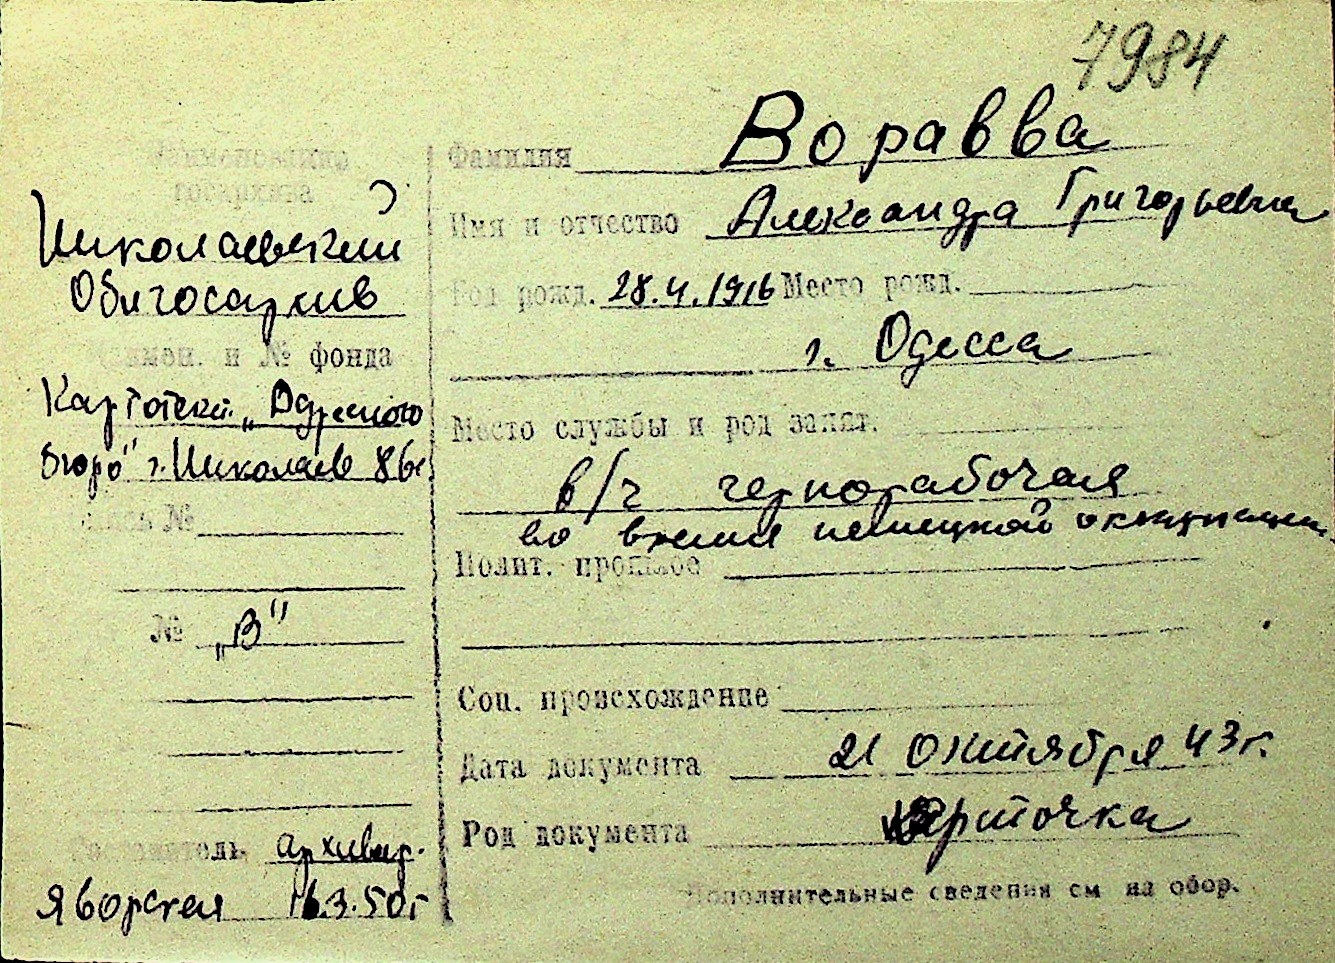 7984
Наименование
госархива
Николаевский
Облгосархив
Наимен. и № фонда
Картотека „Адресного
бюро" г. Николаев
№
№ „В"
Составитель архивар.
Яворская 16.3.50г
Фамилия Воравва
Имя и отчество Александра Григорьевна
Год рожд. 28.4.1916 Место рожд.
г. Одесса
Место службы и род занят.
в/ч чернорабочая
во время немецкой оккупации
Полит. прошлое
Соц. происхождение
Дата документа 21 октября 43г.
Род документа карточка
Дополнительные сведения см на обор.